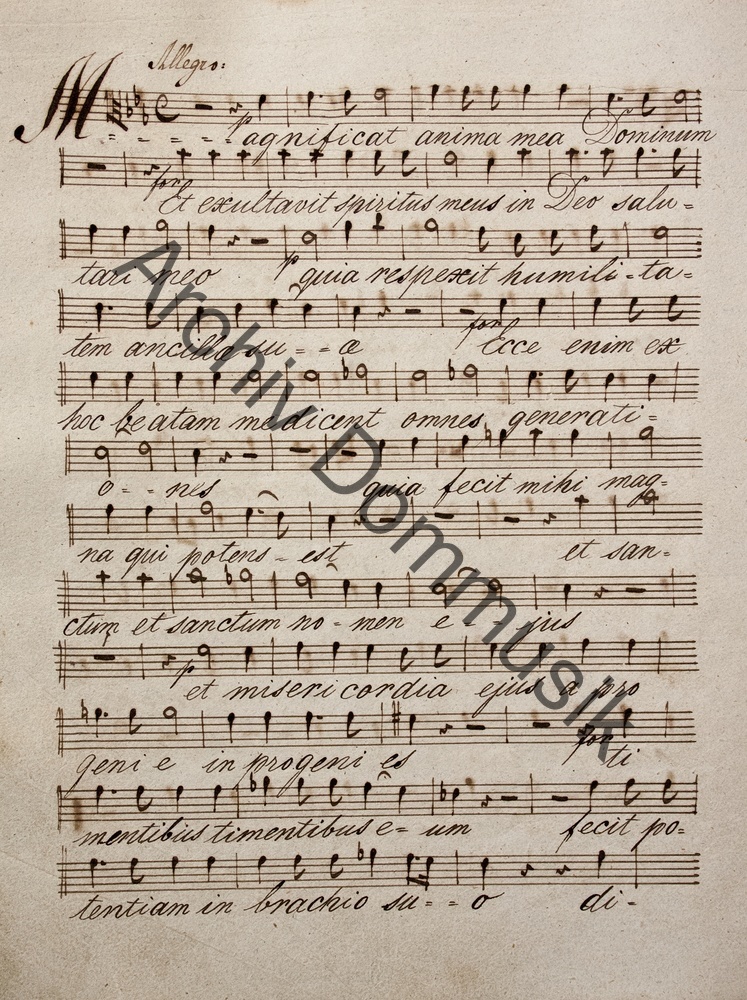 Allegro:
M - - - - - agnificat anima mea Dominum
for
Et exultavit spiritus meus in Deo salu =
p
tari meo quia respexit humili = ta =
for
tem ancillæ su - - æ Ecce enim ex
hoc beatam me dicent omnes generati =
o - - nes quia fecit mihi mag =
na qui potens - est et san =
ctum et sanctum no - men e - - jus
p
et misericordia ejus a pro
for
geni e in progeni es ti
mentibus timentibus e = um fecit po =
tentiam in brachio su = = o di -
Archiv Dommusik